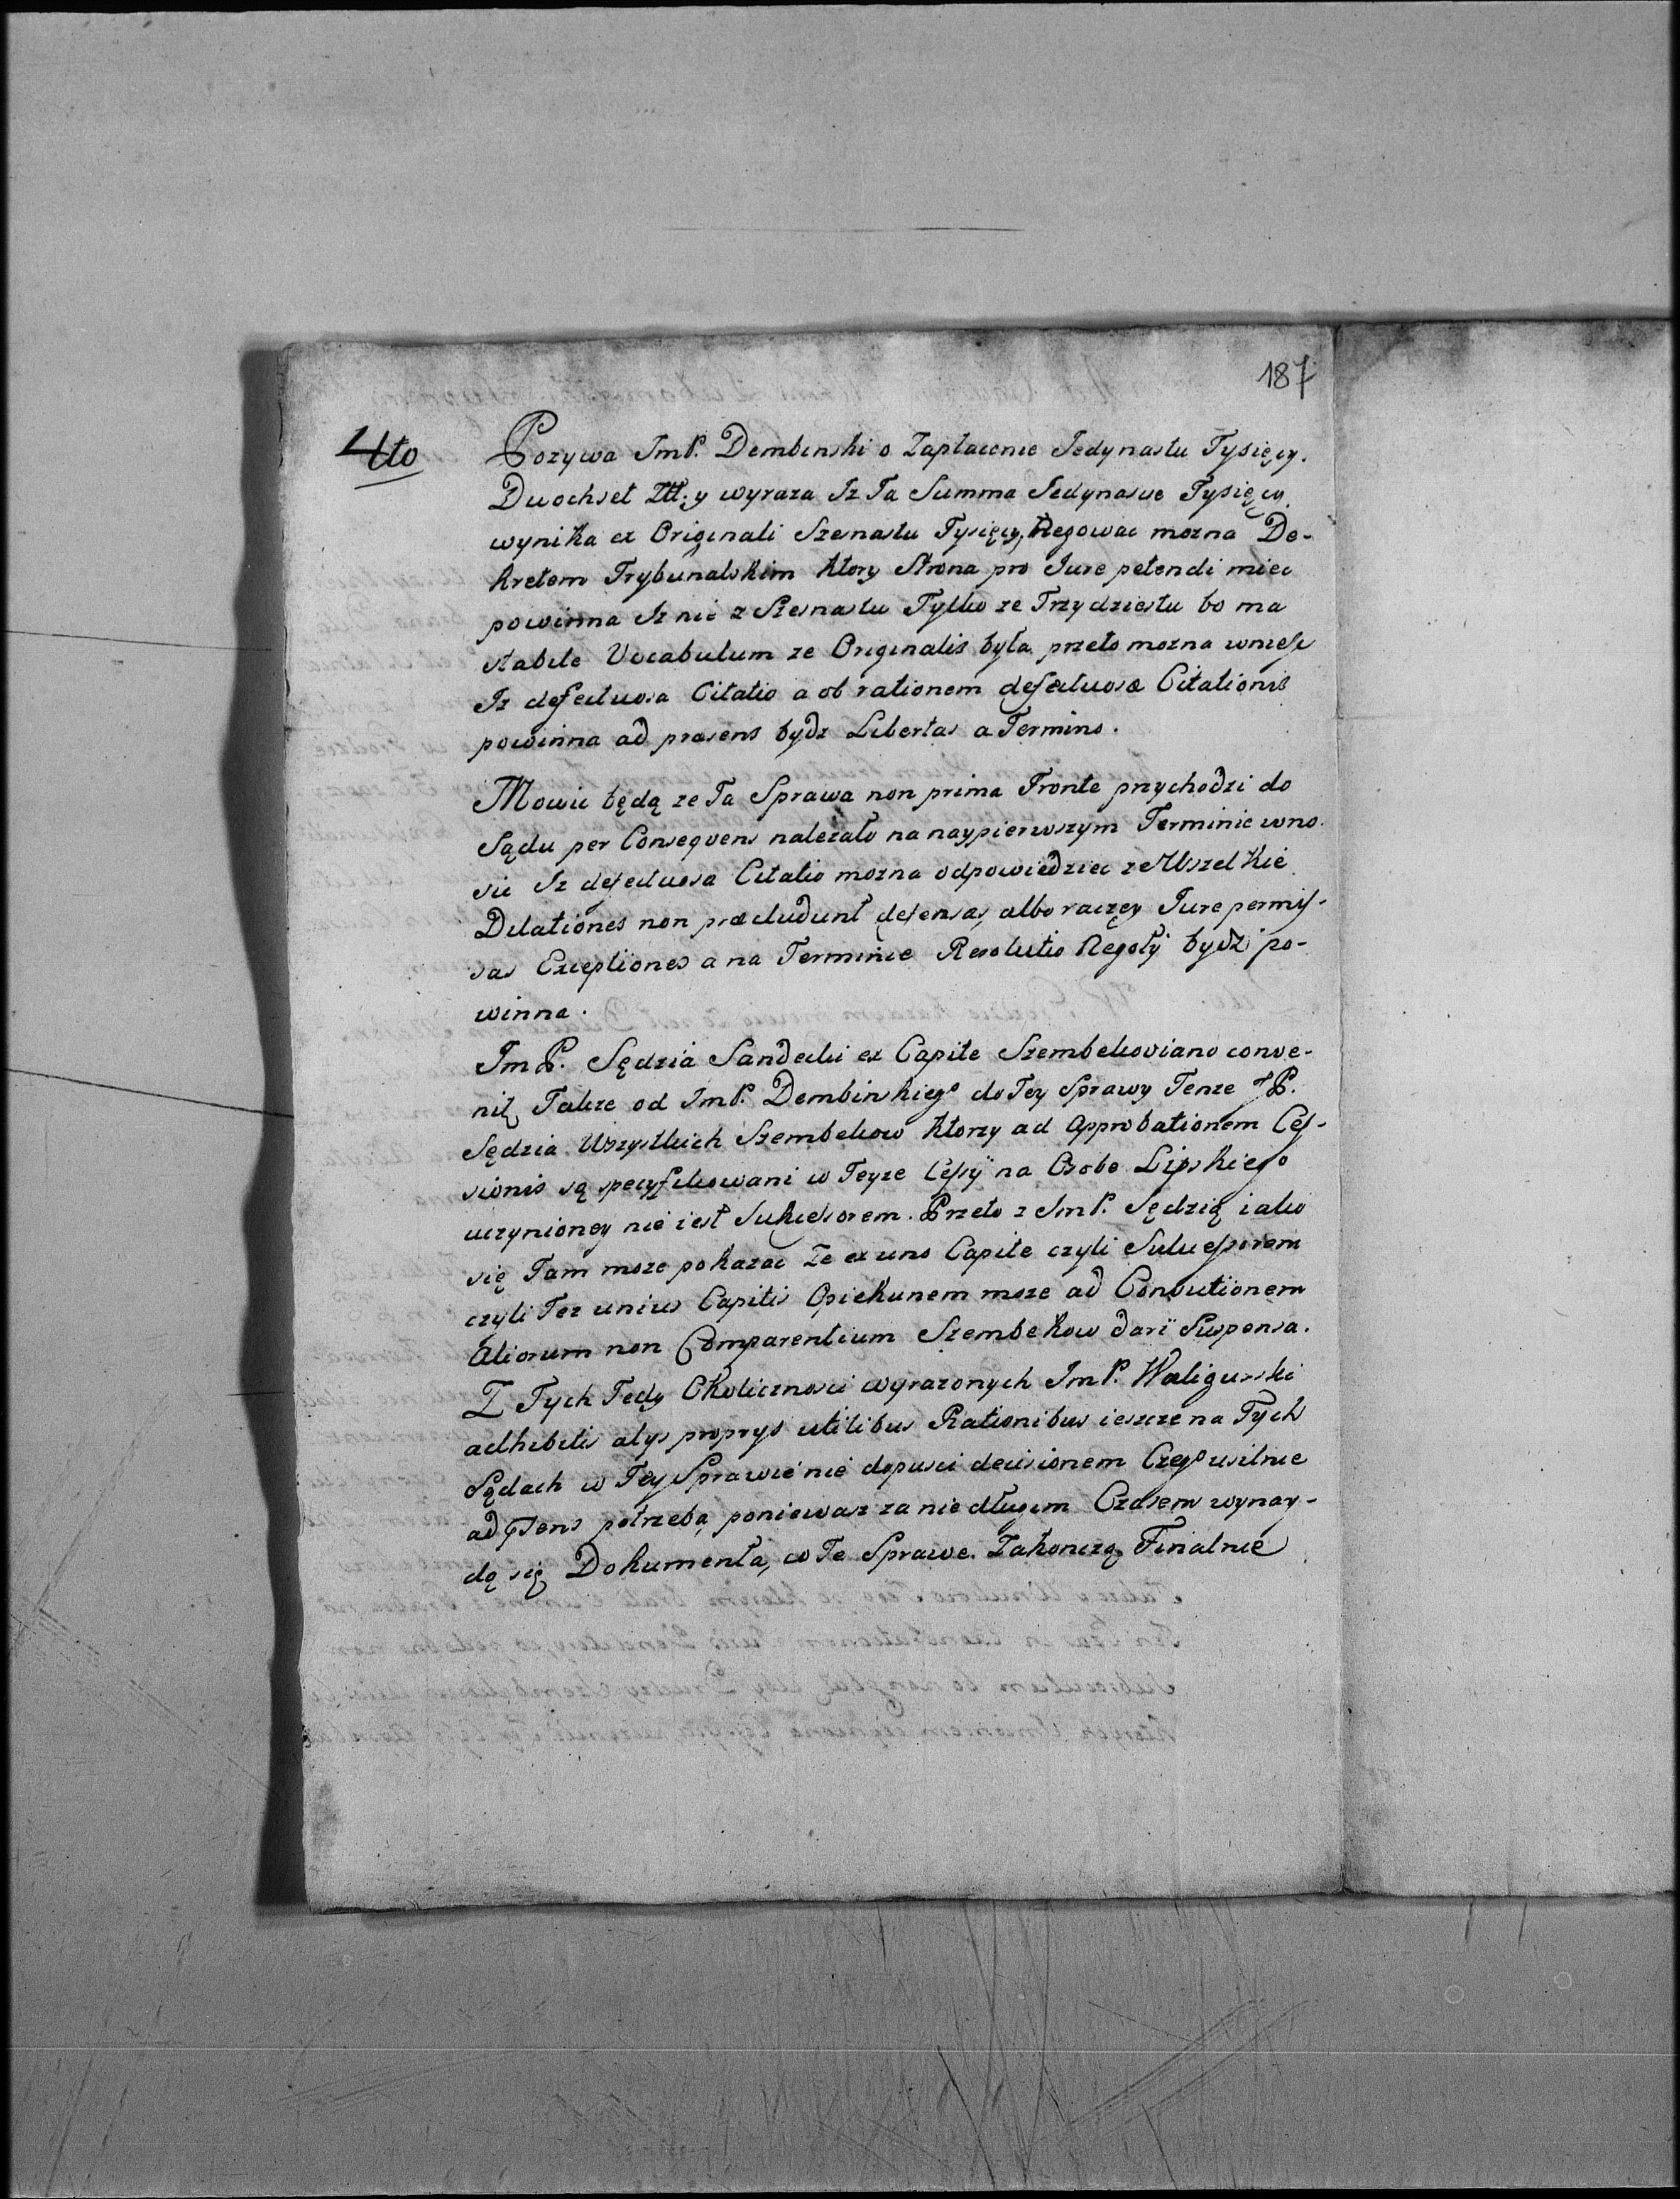 187
4to
Pozywa ImP. Dembinski o Zapłacenie Jedynastu Tysięcy.
Duochset Ztt: y wyraza Iz Ta Summa Jedynascie Tysięcy
wynika ex Originali Szesnastu Tysięcy, Negowac mozna De-
kretem Trybunalskim ktory Strona pro Jure petendi miec
powinna Iz nie z Szesnastu Tylko ze Trzydziestu bo ma
stabile Vocabulum ze Originalis była przeto mozna wniesc
Iz defectuosa Citatio a ob rationem defectuosæ Citationis
powinna ad præsens bydz Libertas a Termino.
Mowic będą ze Ta Sprawa non prima Fronte przychodzi do
Sądu per Consequens nalezało na naypierwszym Terminie wno
sic Iz defectuosa Citatio mozna odpowiedziec ze Wszelkie
Dilationes non præcludunt defensas, albo raczey Jure permis-
sas Exceptiones a na Terminie Resolutio Regoły bydz po-
winna.
Im P. Sędzia Sandecki ex Capite Szembekoviano conve-
nit Takze od ImP. Dembinskiego do Tey Sprawy Tenze JP.
Sędzia Wszystkich Szembekow ktorzy ad Approbationem Ces-
sionis są specyfikowani w Teyze Cessÿ na Osobe Lipskiego
uczynioney nie iest Sukcessorem. Przeto z ImP. Sędzią iako
się Tam moze pokazac Ze ex uno Capite czyli Sukcessorem
czyli Tez unius Capitis Opiekunem moze ad Convictionem
Aliorum non Comparentium Szembekow dari Suspensa.
Z Tych Tedy Okolicznosci wyrazonych ImP. Waligurski
adhibitis alys proprys utilibus Rationibus ieszcze na Tych
Sądach w Tey Sprawie nie dopusci decisionem Czego usilnie
ad psens potrzeba, poniewaz za niedługim Czasem wynay-
dą się Dokumenta, co Te Sprawe Zakonczą Finalnie